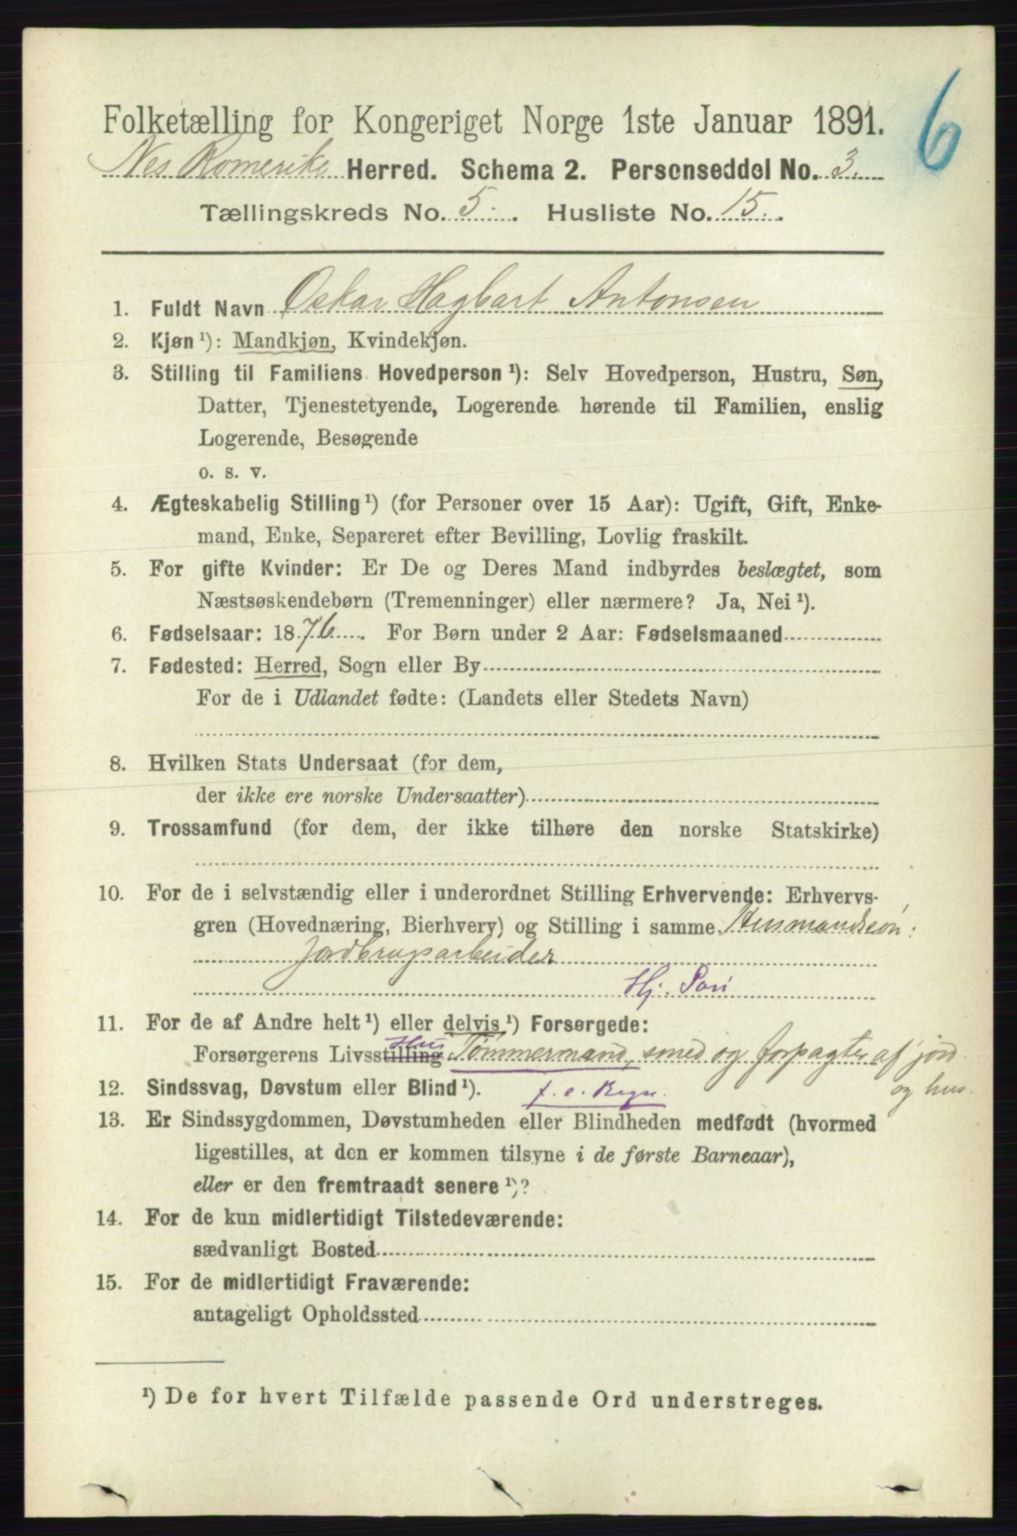 6
Folketælling for Kongeriget Norge 1ste Januar 1891.
Nes Romerike Herred. Schema 2. Personseddel No. 3.
Tællingskreds No. 5. Husliste No. 15.
1. Fuldt Navn Oskar Hagbart Antonsen
2. Kjøn ¹): Mandkjøn, Kvindekjøn.
3. Stilling til Familiens Hovedperson ¹): Selv Hovedperson, Hustru, Søn,
Datter, Tjenestetyende, Logerende hørende til Familien, enslig
Logerende, Besøgende
o. s. v.
4. Ægteskabelig Stilling ¹) (for Personer over 15 Aar): Ugift, Gift, Enke-
mand, Enke, Separeret efter Bevilling, Lovlig fraskilt.
5. For gifte Kvinder: Er De og Deres Mand indbyrdes beslægtet, som
Næstsøskendebørn (Tremenninger) eller nærmere? Ja, Nei ¹).
6. Fødselsaar: 1876. For Børn under 2 Aar: Fødselsmaaned
7. Fødested: Herred, Sogn eller By
For de i Udlandet fødte: (Landets eller Stedets Navn)
8. Hvilken Stats Undersaat (for dem,
der ikke ere norske Undersaatter)
9. Trossamfund (for dem, der ikke tilhøre den norske Statskirke)
10. For de i selvstændig eller i underordnet Stilling Erhvervende: Erhvervs-
gren (Hovednæring, Bierhverv) og Stilling i samme Husmandssøn:
Jordbrugsarbeider
Hj.
11. For de af Andre helt ¹) eller delvis ¹) Forsørgede:
Forsørgerens Livsstilling Hus Tømmermand, smed og forpagter af jord
og hus
12. Sindssvag, Døvstum eller Blind ¹). f. e. Regn.
13. Er Sindssygdommen, Døvstumheden eller Blindheden medfødt (hvormed
ligestilles, at den er kommen tilsyne i de første Barneaar),
eller er den fremtraadt senere ¹)?
14. For de kun midlertidigt Tilstedeværende:
sædvanligt Bosted
15. For de midlertidigt Fraværende:
antageligt Opholdssted
¹) De for hvert Tilfælde passende Ord understreges.